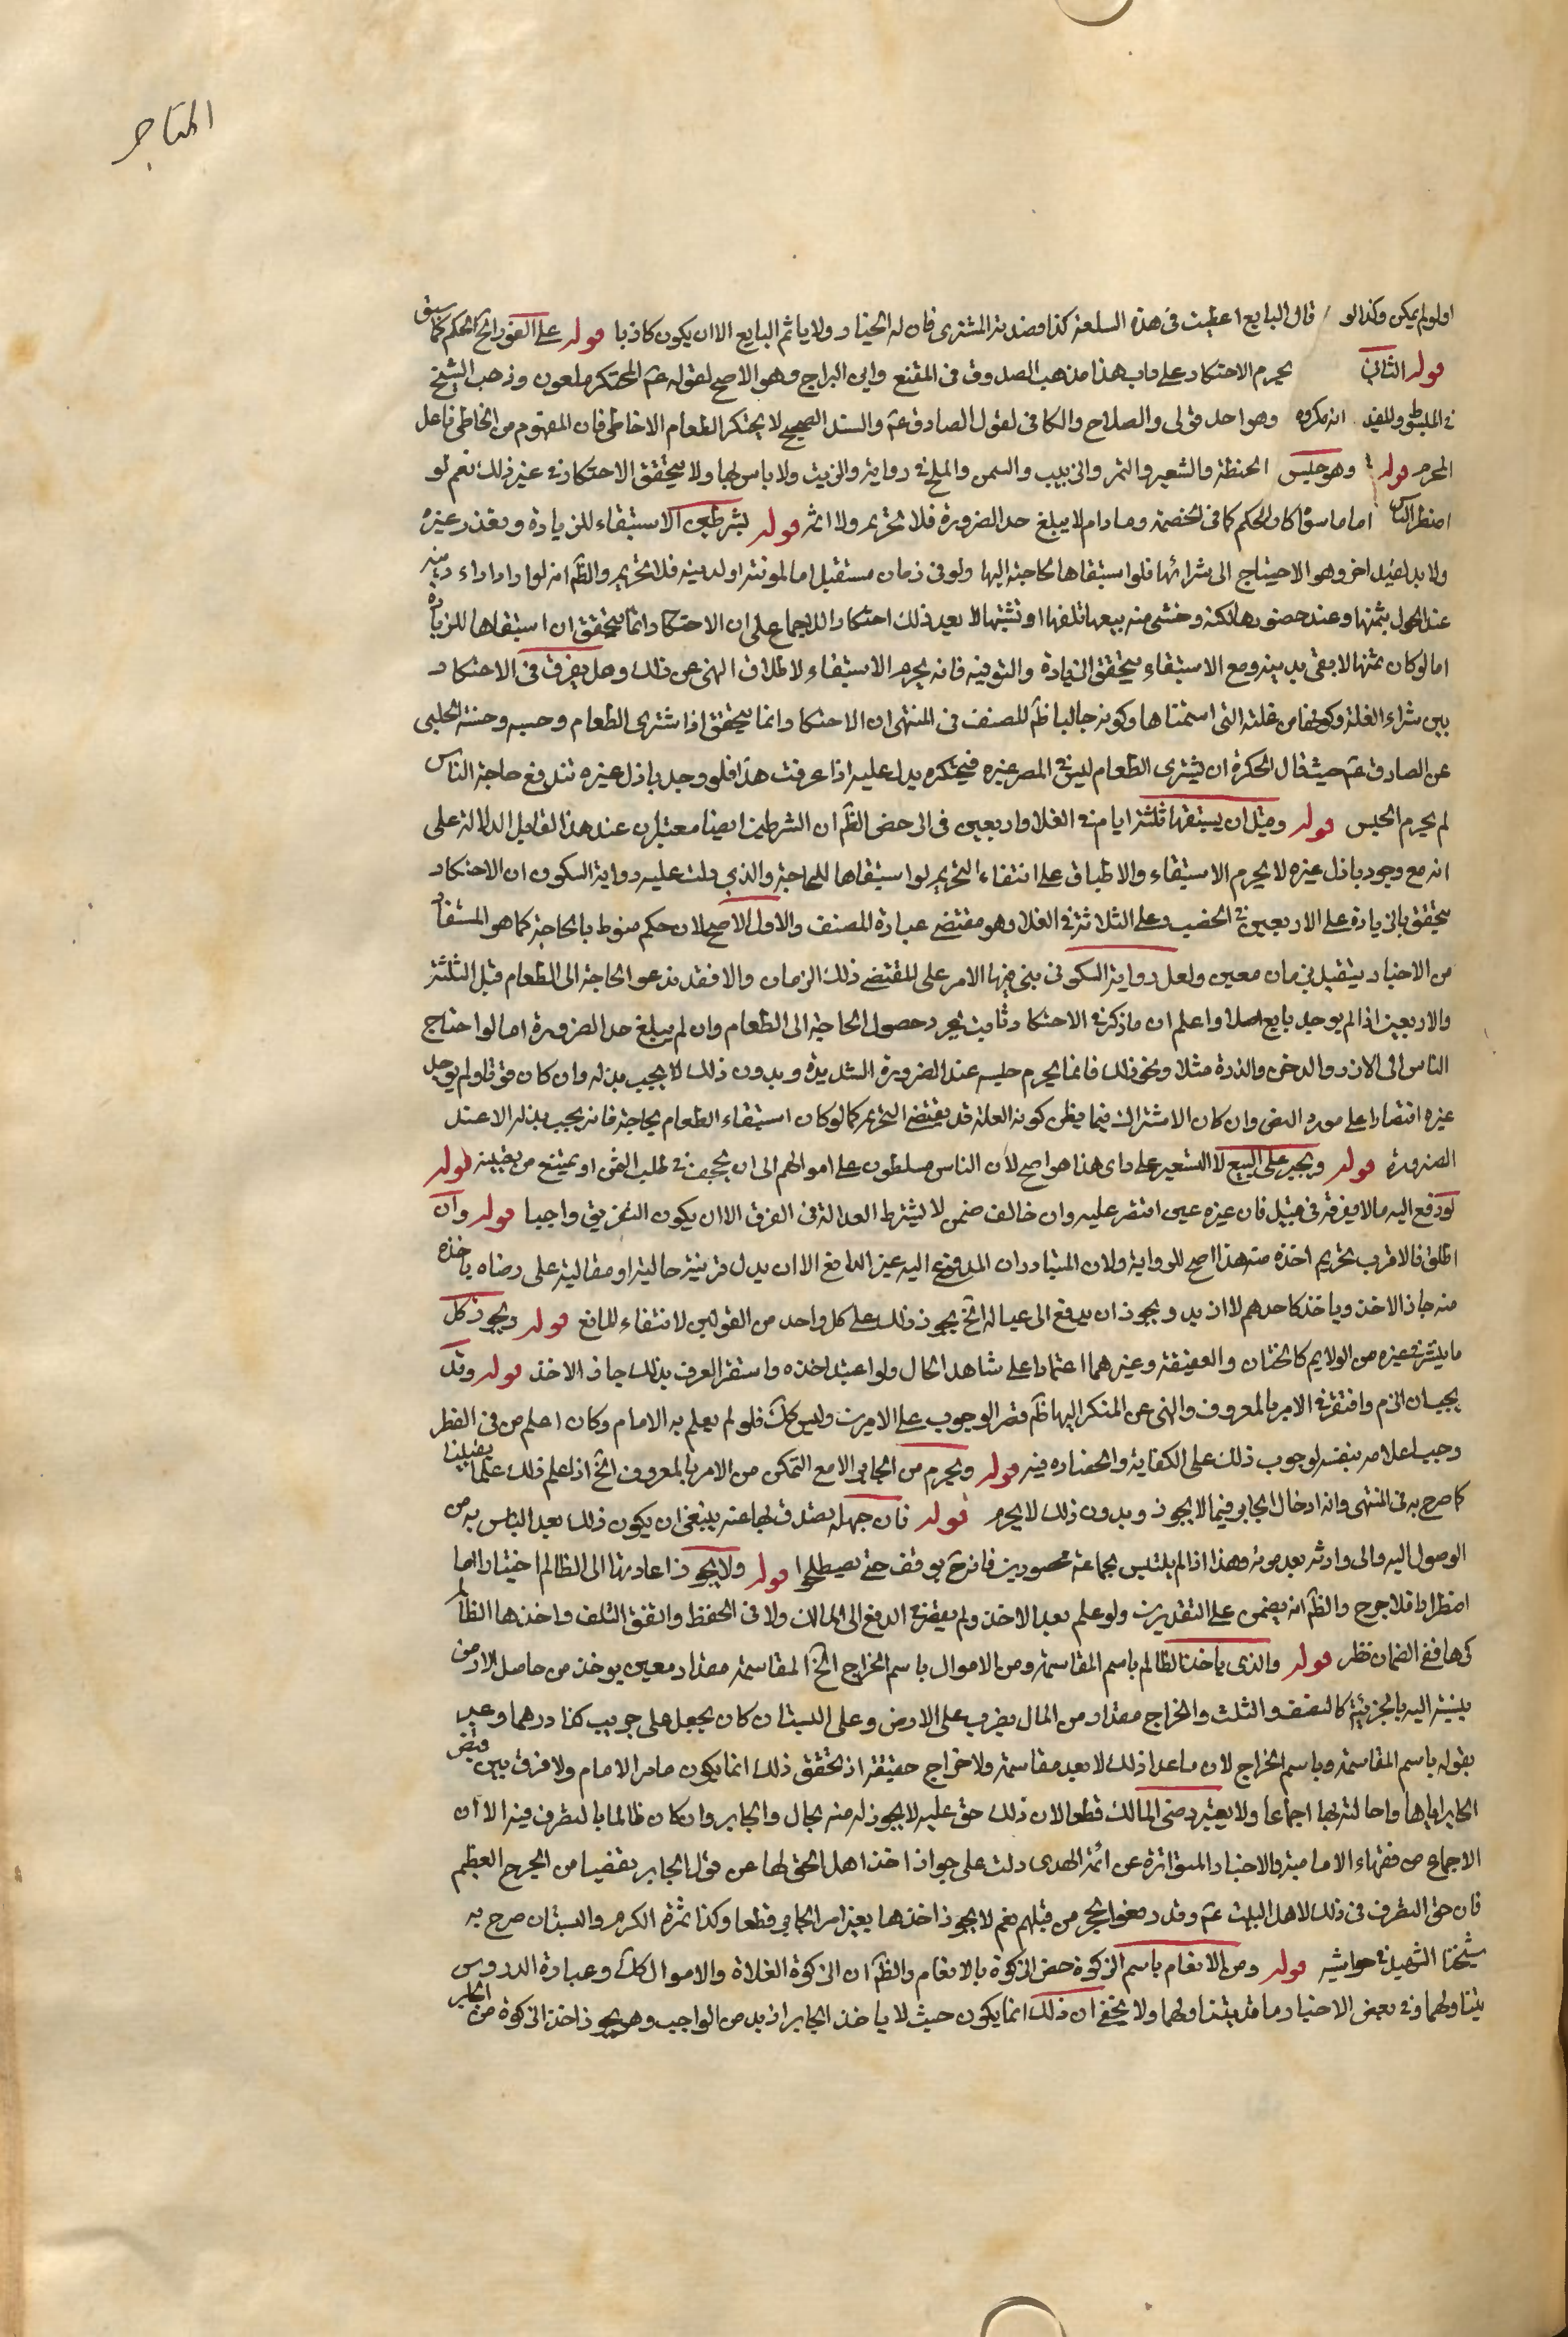 المتاجر
اولولم يمكن وكذا لو قال البايع اعطيت فى هذه السلعة كذا فصدقه المشترى فان له الخيار ولا ياثم البايع الا ان يكون كاذبا قوله على الفور الخ الحكم كما سبق
قوله الثانى يحرم الاحتكار على راى هذا مذهب الصدوق فى المقنع وابن البراج وهو الاصح لقوله عم المحتكر ملعون وذهب الشيخ
فى المبسوط والمفيد انه مكروه وهو احد قولى والصلاح والكافى لقول الصادق عم والسند الصحيح لا يحتكر الطعام الا خاطى فان المفهوم من الخاطى فاعل
المحرم قوله وهو حبس الحنطة والشعير والتمر والزبيب والسمن والملح فى رواية والزيت ولا باس بها ولا يتحقق الاحتكار فى غير ذلك نعم لو
اضطر الناس اما ما سوى كان الحكم كما فى المخمصة وما دام لا يبلغ حد الضرورة فلا تحريم ولا اثم قوله بشرطين الاستبقاء للزيادة وتعذر غيره
ولا بد لقيد اخر وهو الاحتياج الى شرائها فلو استبقاها لحاجته اليها ولو فى زمان مستقبل اما لمونته او لدينه فلا تحريم والظ انه لو اراد اداء دينه
عند الحلول بثمنها وعند حضور هلاكه وخشى منه بيعها تلفها او تشتتها لا يعد ذلك احتكارا للاجماع على ان الاحتكار انما يتحقق ان استبقاها للزيادة
اما لو كان ثمنها لا يفى بدينه ومع الاستبقاء يتحقق الزيادة والتوفية فانه يحرم الاستبقاء لاطلاق النهى عن ذلك وهل يفرق فى الاحتكار
بين شراء الغلة وكونها من غلته التى استنماها وكونه جالبا ظ للمصنف فى المنتهى ان الاحتكار انما يتحقق اذا اشترى الطعام وحبسه وحسنة الحلبى
عن الصادق عم حيث قال الحكرة ان يشترى الطعام ليس فى المصر غيره فيحتكره يدل عليه اذا عرفت هذا فلو وجد باذل غيره تندفع حاجة الناس
لم يحرم الحبس قوله وقيل ان يستبقيها ثلثة ايام فى الغلاء واربعين فى الرخص الظ ان الشرطين ايضا معتبران عند هذا القايل الدلالة على
انه مع وجود باذل غيره لا يحرم الاستبقاء والاطباق على انتفاء التحريم لو استبقاها للحاجة والذى دلت عليه رواية السكونى ان الاحتكار
يتحقق بالزيادة على الاربعين فى الخصب وعلى الثلاثة فى الغلاء وهو مقتضى عبارة المصنف والاول الاصح لان حكم منوط بالحاجة كما هو المستفاد
من الاخبار يتقيد بزمان معين ولعل رواية السكونى بنى فيها الامر على المقتضى ذلك الزمان والا فقد تدعو الحاجة الى الطعام قبل الثلثة
والاربعين اذا لم يوجد بايع اصلا واعلم ان ما ذكر فى الاحتكار ثابت بمجرد حصول الحاجة الى الطعام وان لم يبلغ حد الضرورة اما لو احتاج
الناس الى الارز والدخن والذرة مثلا ونحو ذلك فانما يحرم حبسه عند الضرورة الشديدة وبدون ذلك لا يجب بذله وان كان قوتا ولم يوجد
غيره اقتصارا على مورد النص وان كان الاشتراك فيما يظن كونه العلة قد يقتضى التحريم كما لو كان استبقاء الطعام لحاجة فانه يجب بذله الا عند
الضرورة قوله ويجبر على البيع لا التسعير على راى هذا هو اصح لان الناس مسلطون على اموالهم الى ان يجحف فى طلب الثمن او يمتنع من تعيينه قوله
لو دفع اليه مالا يفرقه فى قبيل فان غيره عين اقتصر عليه وان خالف ضمن لا يشترط العدالة فى الفرق الا ان يكون التفريق واجبا قوله وان
اطلق فالاقرب تحريم اخذه منه هذا اصح للرواية ولان المتبادر ان المدفوع اليه غير الدافع الا ان يدل قرينة حالية او مقالية على رضاه باخذه
منه جاز الاخذ وياخذ كاحدهم لا ازيد ويجوز ان يدفع الى عياله الخ يجوز ذلك على كل واحد من القولين لانتفاء المانع قوله ويجوز كل
ما ينثر فى غيره من الولايم كالختان والعقيقة وغيرهما اعتمادا على شاهد الحال ولو اعتيد اخذه واستقر العرف بذلك جاز الاخذ قوله وقد
يجبان الزم وافتقر فى الامر بالمعروف والنهى عن المنكر اليها ظ قصر الوجوب على الامرين وليس كك فلو لم يعلم به الامام وكان اعلم من فى القطر
وجب اعلامه بنفسه لوجوب ذلك على الكفاية وانحصاره فيه قوله ويحرم من الجاير الا مع التمكن من الامر بالمعروف الخ اذا علم ذلك علما يقينا
كما صرح به فى المنتهى وانه ادخال الجابر فيما لا يجوز وبدون ذلك لا يحرم قوله فان جهله تصدق بها عنه ينبغى ان يكون ذلك بعد الياس به من
الوصول اليه والى وارثه بعد موته وهذا اذا لم يلتبس بجماعة محصورين فانه ح يوقف حتى يصطلحوا قوله ولا يجوز اعادتها الى الظالم اختيارا اما
اضطرارا فلا حرج والظ انه يضمن على التقديرين ولو علم بعد الاخذ ولم يقصر فى الدفع الى المالك ولا فى الحفظ واتفق التلف واخذها الظالم
كرها ففى الضمان نظر قوله والذى ياخذ الظالم باسم المقاسمة ومن الاموال باسم الخراج الخ المقاسمة مقدار معين يوخذ من حاصل الارض
بنسبة اليه بالجزئية كالنصف والثلث والخراج مقدار من المال يضرب على الارض وعلى البستان كان يجعل على جريب كذا درهما وعبر
بقوله باسم المقاسمة وباسم الخراج لان ما عدا ذلك لا يعد مقاسمة ولا خراج حقيقة اذ تحقق ذلك انما يكون بامر الامام ولا فرق بين قبض
الجاير اياها واحالته بها اجماعا ولا يعتبر رضى المالك قطعا لان ذلك حق عليه لا يجوز له منعه بحال والجاير وان كان ظالما بالتصرف فيه الا ان
الاجماع من فقهاء الامامية والاخبار المتواترة عن ائمة الهدى دلت على جواز اخذ اهل الحق لها عن قول الجاير تقصيا من الحرج العظيم
فان حق التصرف فى ذلك لاهل البيت عم وقد رفعوا الحجر من قبلهم نعم لا يجوز اخذها بغير امر الجاير قطعا وكذا ثمرة الكرم والبستان صرح به
شيخنا الشهيد فى حواشيه قوله ومن الانعام باسم الزكوة خص الزكوة بالانعام والظ ان الزكوة الغلاة والاموال كك وعبارة الدروس
يتناولهما وفى بعض الاخبار ما قد يتناولهما ولا يخفى ان ذلك انما يكون حيث لا ياخذ الجاير ازيد من الواجب وهل يجوز اخذ الزكوة من الجاير